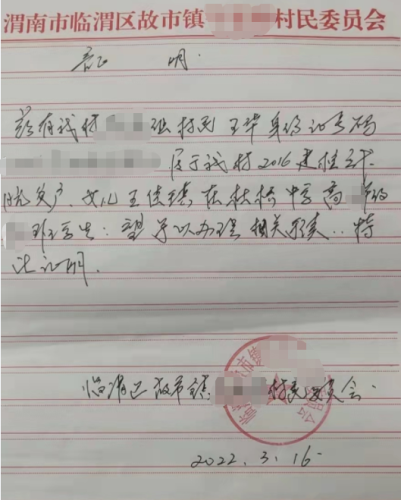 渭南市临渭区故市镇 村民委员会
证 明
兹有我村 组村民王华身份证号码
属于我村2016建档立卡
脱贫户,女儿王佳 在杜桥中学高 年级
班学生;望予以办理相关手续..特
此证明.
临渭区故市镇 村民委员会.
2022.3.16